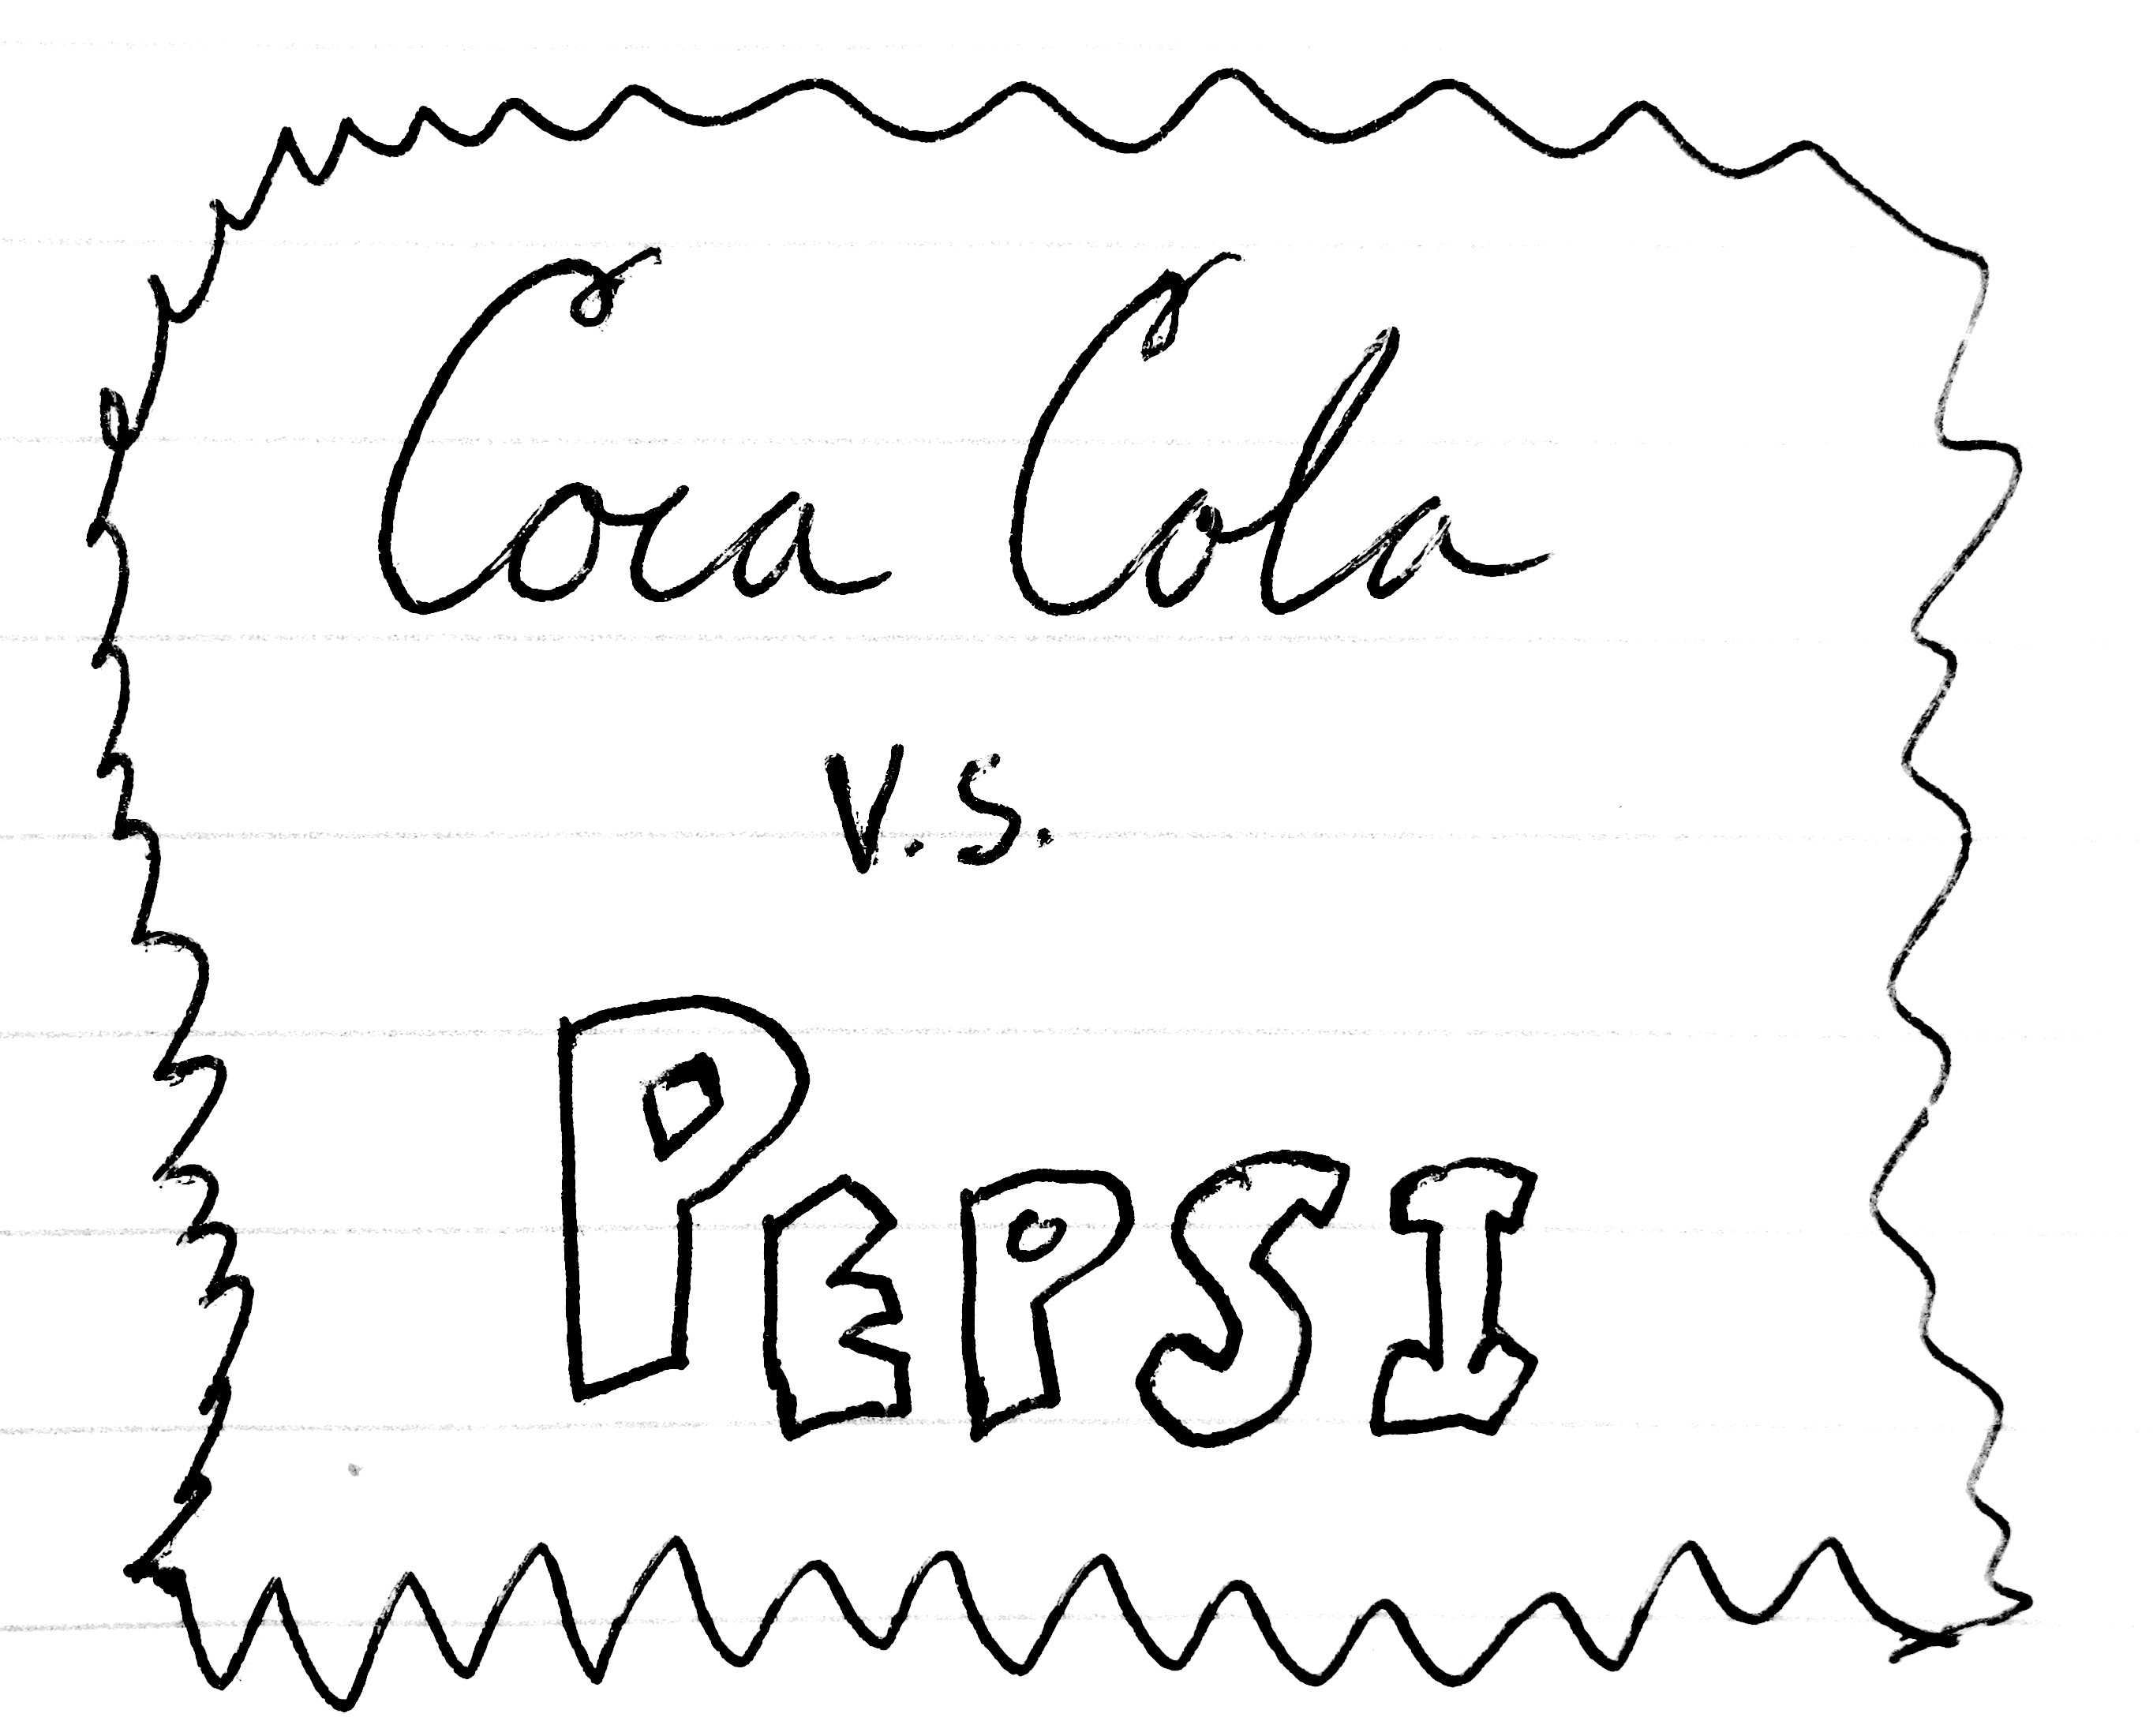 Coca Cola
v.s.
PEPSI